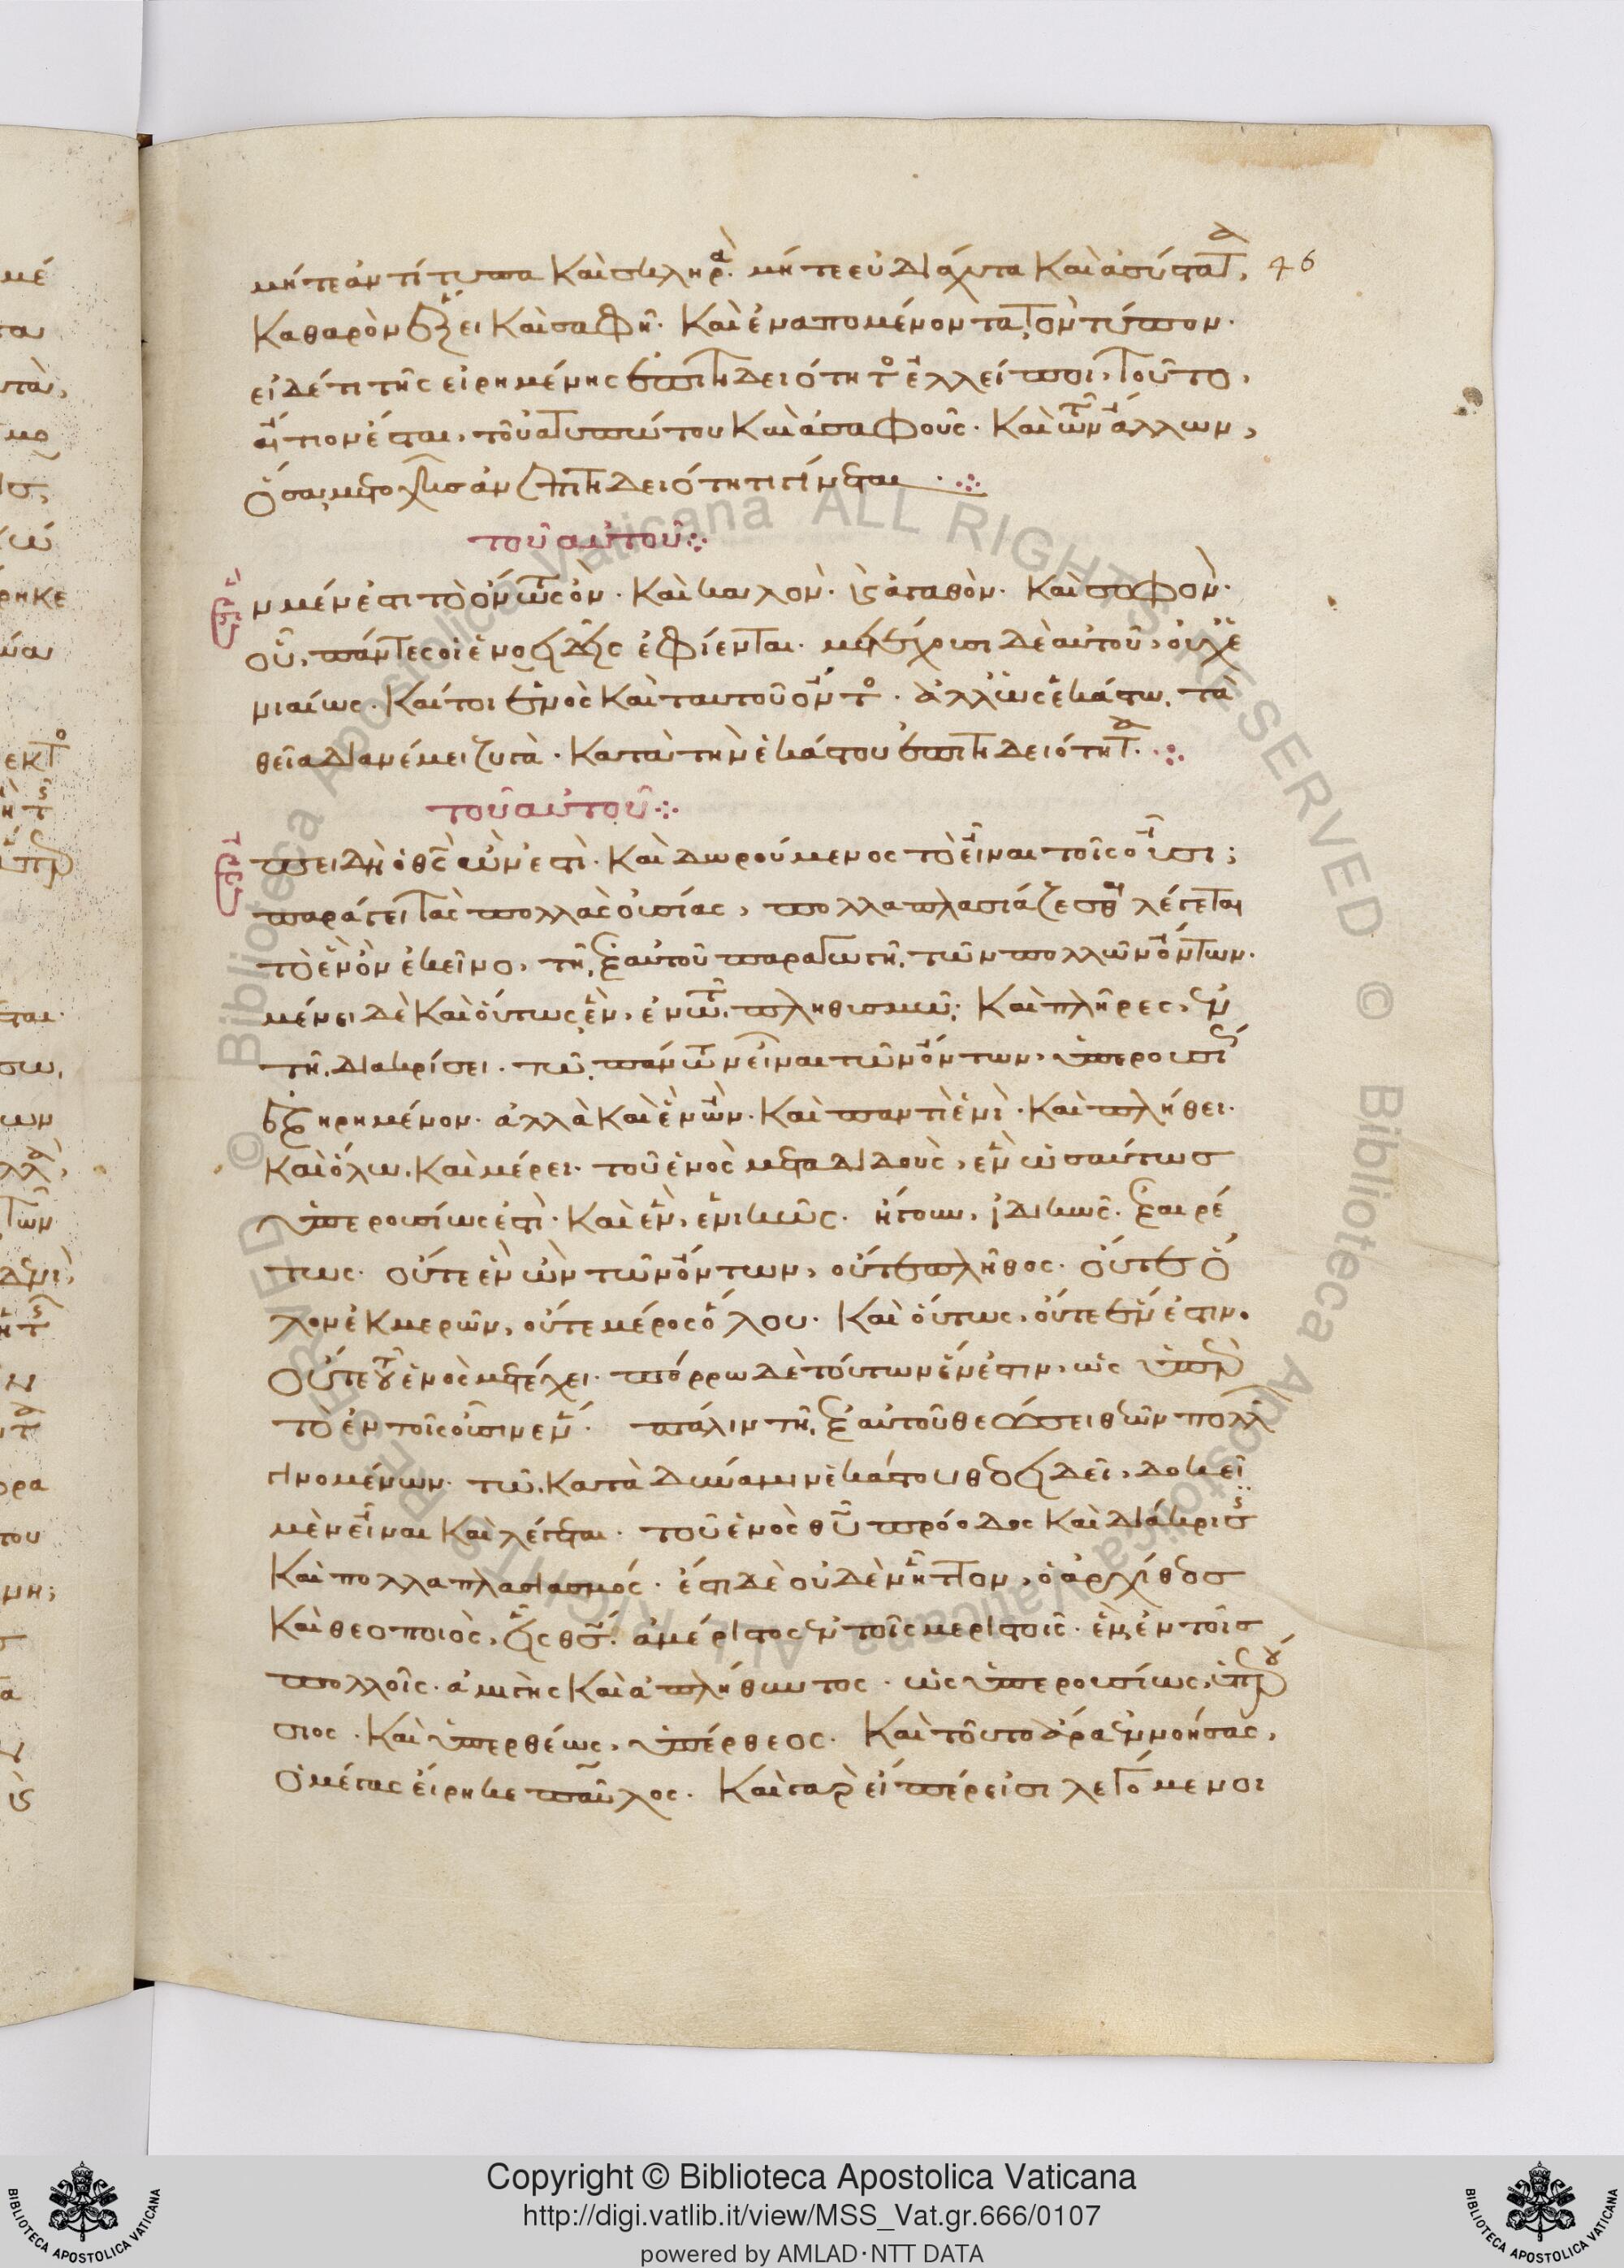 μήτε ἀντίτυπα καὶ σκληρὰ· μήτε εὐδιάχυτα καὶ ἀσύστατα, 46
καθαρὸν ἕξει καὶ σαφῆ· καὶ ἐναπομένοντα τὸν τύπον·
εἰ δέ τι τῆς εἰρημένης ἐπιτηδειότητος ἐλλείποι, τοῦτο,
αἴτιον ἔσται, τοῦ ἀτυπώτου καὶ ἀσαφοῦς· καὶ τῶν ἄλλων,
ὅσα μετοχῆς ἀνεπιτηδειότητι γίνεται
τοῦ αὐτοῦ
ν μέν ἐστι τὸ ὄντως ὄν· καὶ καλὸν· καὶ ἀγαθὸν· καὶ σοφὸν·
οὗ, πάντες οἱ ἐν θεῷ ἐφίενται· μετέχουσι δὲ αὐτοῦ, οὐχ ἑ
νιαίως· καίτοι ἑνὸς καὶ ταυτοῦ ὄντος· ἀλλ' ὡς ἑκάστῳ τὰ
θεῖα διανέμει ζυγὰ· κατὰ τὴν ἑκάστου ἐπιτηδειότητα
τοῦ αὐτοῦ
πειδὴ ὁ θεὸς ὤν ἐστὶ· καὶ δωρούμενος τὸ εἶναι τοῖς οὖσι;
παράγει τὰς πολλὰς οὐσίας, πολλαπλασιάζεσθαι λέγεται
τὸ ἓν ὂν ἐκεῖνο, τῇ ἐξ αὐτοῦ παραγωγῇ τῶν πολλῶν ὄντων·
μένει δὲ καὶ οὕτως ἓν, ἐν τῷ πληθυσμῷ· καὶ πλῆρες, ἐν
τῇ διακρίσει· τῷ πάντων εἶναι τῶν ὄντων, ὑπερουσίως
ἐξῃρημένον· ἀλλὰ καὶ ἓν ὢν· καὶ παντὶ ἑνὶ· καὶ πλήθει·
καὶ ὅλῳ, καὶ μέρει· τοῦ ἑνὸς μεταδιδοὺς, ἓν ὡσαύτως
ὑπερουσίως ἐστὶ· καὶ ἓν, ἑνικῶς· ἤγουν, ἰδικῶς· ἐξαιρέ
τως· οὔτε ἓν ὢν τῶν ὄντων, οὔτε πλῆθος· οὔτε ὅ
λον ἐκ μερῶν, οὔτε μέρος ὅλου· καὶ οὕτως, οὔτε ἕν ἐστιν·
οὔτε τοῦ ἑνὸς μετέχει· πόρρω δὲ τούτων ἕν ἐστιν, ὡς ὑπὲρ
τὸ ἐν τοῖς οὖσιν ἕν· πάλιν τῇ ἐξ αὐτοῦ θεώσει θεῶν πολλῶν
γινομένων· τῷ κατὰ δύναμιν ἑκάστου θεοειδεῖ, δοκεῖ
μὲν εἶναι καὶ λέγεται· τοῦ ἑνὸς θεοῦ πρόοδος καὶ διάκρισις
καὶ πολλαπλασιασμός· ἔστι δὲ οὐδὲν ἧττον, ὁ ἀρχίθεος
καὶ θεοποιὸς, εἷς θεός· ἀμέριστος ἐν τοῖς μεριστοῖς· ἓν, ἐν τοῖς
πολλοῖς· ἀμιγὴς καὶ ἀπλήθυντος· ὡς ὑπερουσίως, ὑπερού
σιος· καὶ ὑπερθέως, ὑπέρθεος· καὶ τοῦτο ἄρα ἐννοήσας,
ὁ μέγας εἴρηκε παῦλος· καὶ γὰρ εἴπερ εἰσι λεγόμενοι